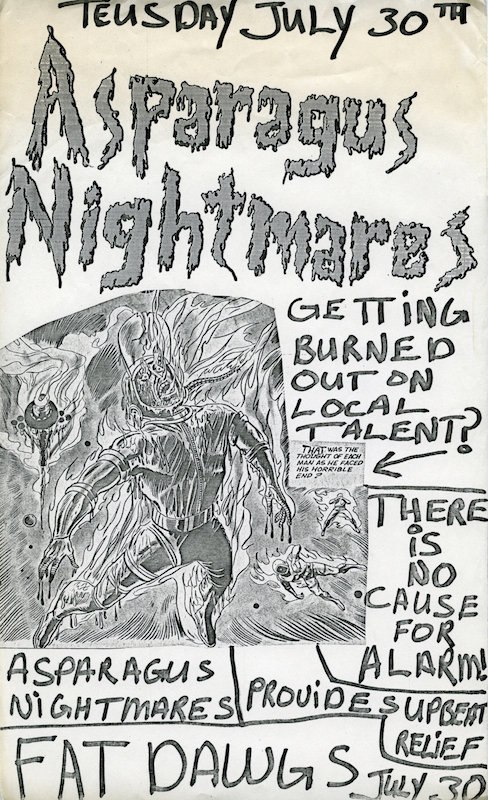 TEUSDAY JULY 30TH
Asparagus
Nightmares
GETTING
BURNED
OUT ON
LOCAL
TALENT?
THAT WAS THE
THOUGHT OF EACH
MAN AS HE FACED
HIS HORRIBLE
END?
THERE
IS
NO
CAUSE
FOR
ALARM!
ASPARAGUS
NIGHTMARES
PROVIDES UPBEAT
RELIEF
FAT DAWGS
JULY 30